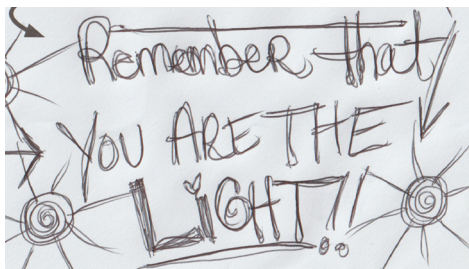 Remember that
YOU ARE THE
LiGHT!!